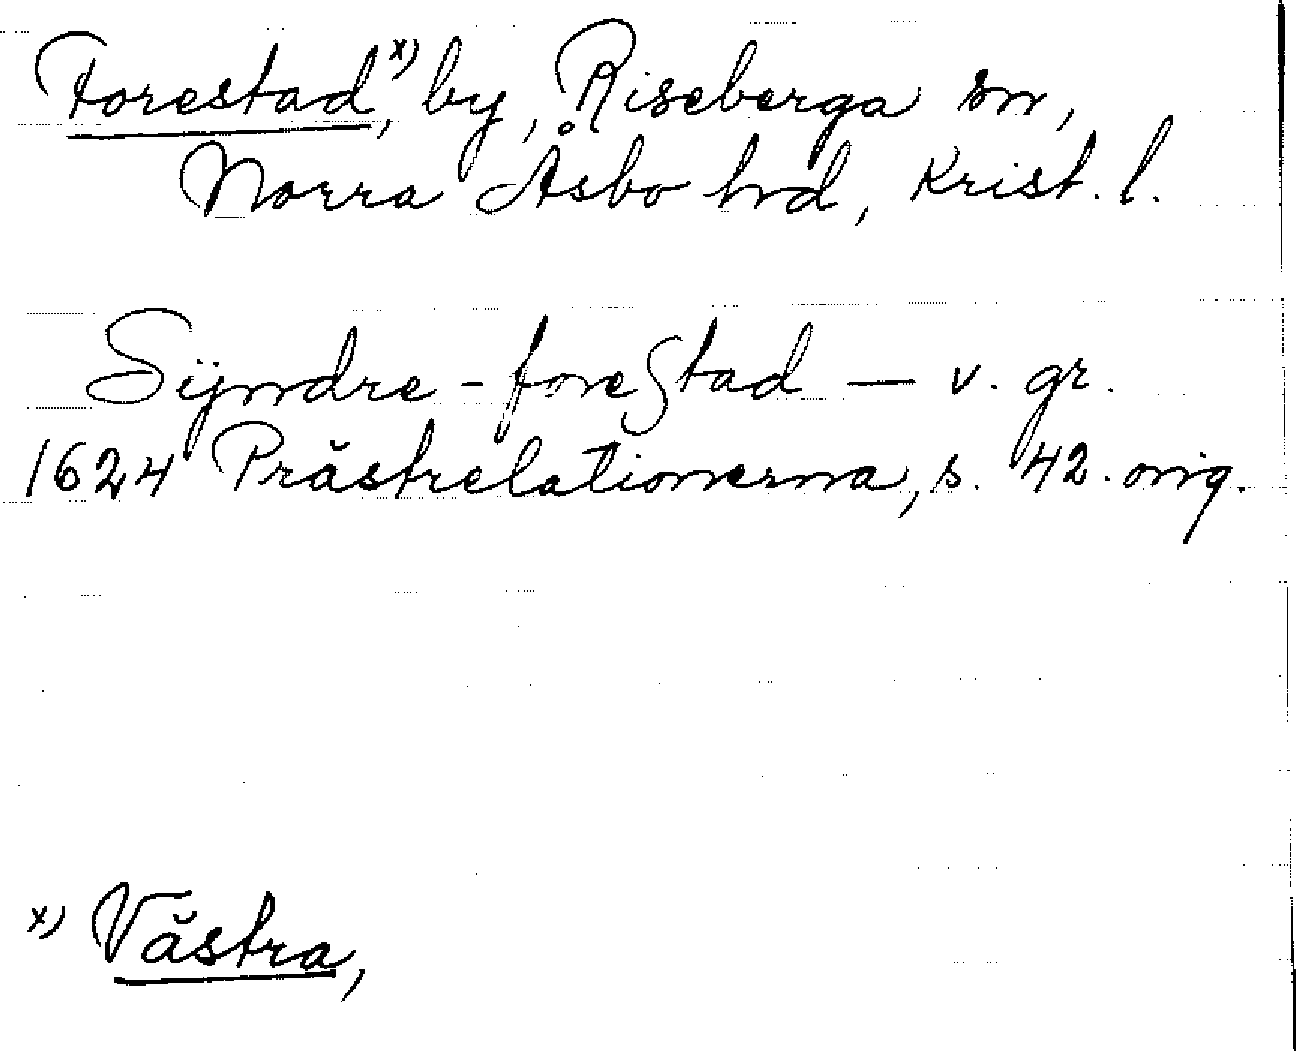 Forestad,ˣ⁾ by, Riseberga sn,
Norra Åsbo hrd, Krist. l.
Sÿndre - foreStad — v. gr.
1624 Prästrelationerna, s. 42. orig.
ˣ⁾ Västra,